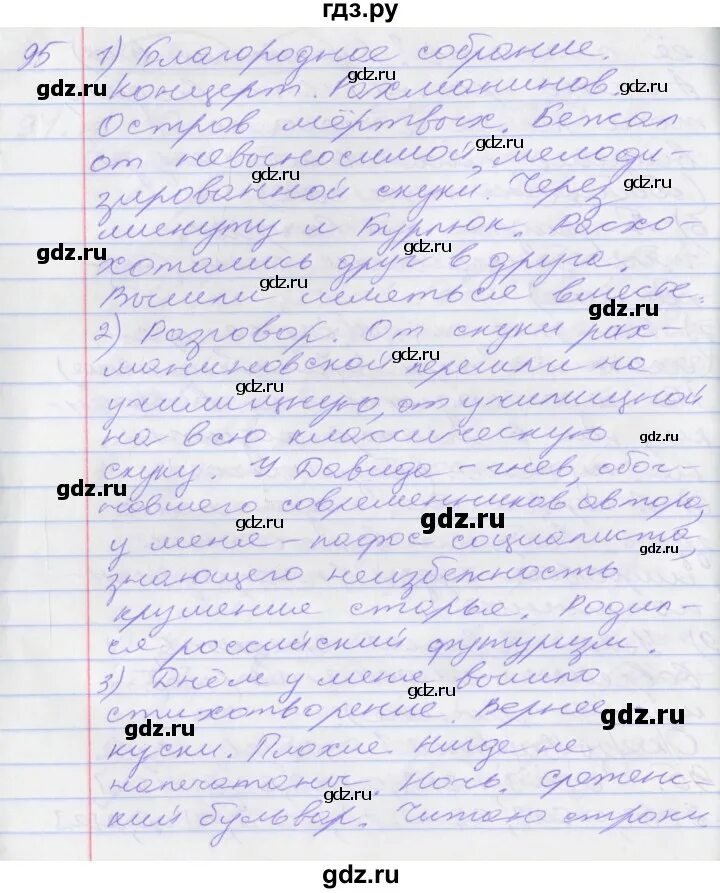 гдз.ру
95 1) Благородное собрание.
Концерт. Рахманинов.
Остров мёртвых. Бежал
от невыносимой мелоди-
зированной скуки. Через
минуту и Бурлюк. Расхо-
хотались друг в друга.
Вышли шляться вместе.
2) Разговор. От скуки рах-
маниновской перешли на
училищную, от училищной
на всю классическую
скуку. У Давида – гнев обог-
навшего современников автора,
у меня – пафос социалиста,
знающего неизбежность
крушения старья. Родил-
ся российский футуризм.
3) Днём у меня вышло
стихотворение. Вернее –
куски. Плохие. Нигде не
напечатаны. Ночь. Сретенс-
кий бульвар. Читаю строки
gdz.ru
gdz.ru
gdz.ru
gdz.ru
gdz.ru
gdz.ru
gdz.ru
gdz.ru
gdz.ru
gdz.ru
gdz.ru
gdz.ru
gdz.ru
gdz.ru
gdz.ru
gdz.ru
gdz.ru
gdz.ru
gdz.ru
gdz.ru
gdz.ru